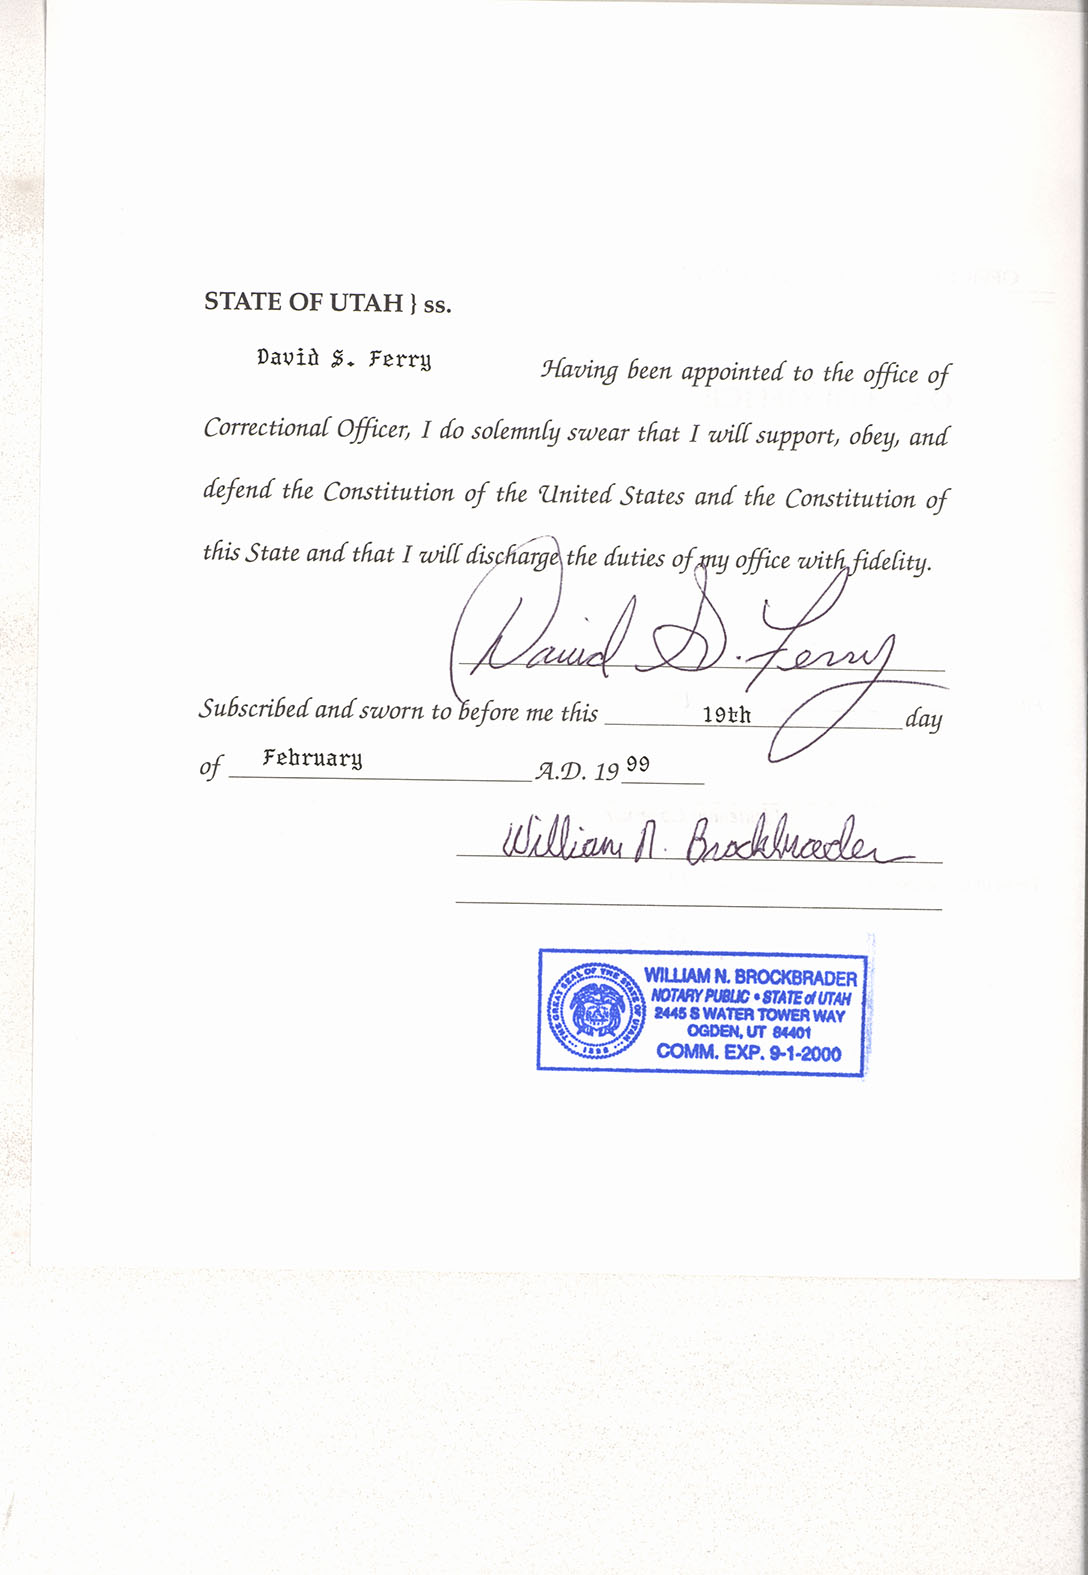 STATE OF UTAH } ss.
David S. Ferry Having been appointed to the office of
Correctional Officer, I do solemnly swear that I will support, obey, and
defend the Constitution of the United States and the Constitution of
this State and that I will discharge the duties of my office with fidelity.
David S. Ferry
Subscribed and sworn to before me this 19th day
of February A.D. 19 99
William N. Brockbrader
WILLIAM N. BROCKBRADER
NOTARY PUBLIC • STATE of UTAH
2445 S WATER TOWER WAY
OGDEN, UT 84401
COMM. EXP. 9-1-2000
THE GREAT SEAL OF THE STATE OF UTAH
1896